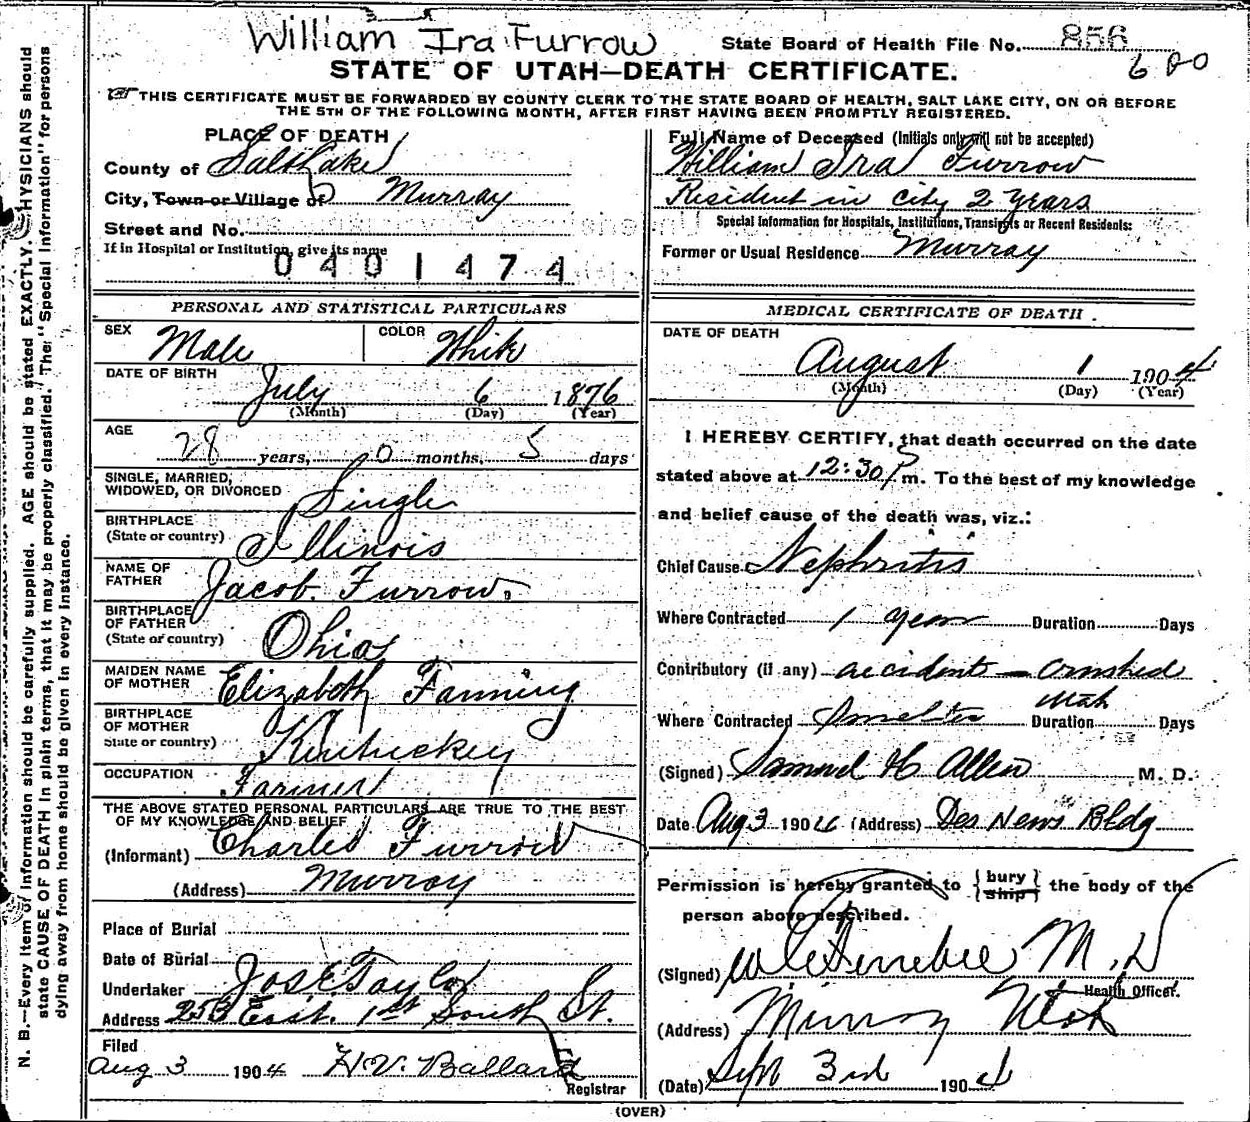 William Ira Furrow
State Board of Health File No. 856
600
STATE OF UTAH—DEATH CERTIFICATE.
THIS CERTIFICATE MUST BE FORWARDED BY COUNTY CLERK TO THE STATE BOARD OF HEALTH, SALT LAKE CITY, ON OR BEFORE
THE 5TH OF THE FOLLOWING MONTH, AFTER FIRST HAVING BEEN PROMPTLY REGISTERED.
PLACE OF DEATH
County of Salt Lake
City, Town or Village of Murray
Street and No.
If in Hospital or Institution, give its name
0401474
Full Name of Deceased (Initials only will not be accepted)
William Ira Furrow
Resident in city 2 years
Special Information for Hospitals, Institutions, Transients or Recent Residents:
Former or Usual Residence Murray
PERSONAL AND STATISTICAL PARTICULARS
SEX Male COLOR White
DATE OF BIRTH July 6 1876
(Month) (Day) (Year)
AGE 28 years, 0 months, 5 days
SINGLE, MARRIED,
WIDOWED, OR DIVORCED Single
BIRTHPLACE
(State or country) Illinois
NAME OF
FATHER Jacob Furrow
BIRTHPLACE
OF FATHER
(State or country) Ohio
MAIDEN NAME
OF MOTHER Elizabeth Fanning
BIRTHPLACE
OF MOTHER
State or country) Kentuckey
OCCUPATION Farmer
THE ABOVE STATED PERSONAL PARTICULARS ARE TRUE TO THE BEST
OF MY KNOWLEDGE AND BELIEF
(Informant) Charles Furrow
(Address) Murray
Place of Burial
Date of Burial
Undertaker Jos E Taylor
Address 253 East 1st South St.
Filed
Aug 3 1904 H.V. Ballard
Registrar
MEDICAL CERTIFICATE OF DEATH.
DATE OF DEATH
August 1 1904
(Month) (Day) (Year)
I HEREBY CERTIFY, that death occurred on the date
stated above at 12:30 P m. To the best of my knowledge
and belief cause of the death was, viz.:
Chief Cause Nephritis
Where Contracted 1 year Duration Days
Contributory (if any) accident — crushed
Utah
Where Contracted Smelter Duration Days
(Signed) Samuel H Allen M. D.
Date Aug 3 1904 (Address) Des News Bldg
Permission is hereby granted to { bury
ship } the body of the
person above described.
(Signed) M.D
Health Officer.
(Address) Murray Utah
(Date) Sept 3rd 1904
(OVER)
N. B.—Every item of information should be carefully supplied. AGE should be stated EXACTLY. PHYSICIANS should
state CAUSE OF DEATH in plain terms, that it may be properly classified. The "Special Information" for persons
dying away from home should be given in every instance.